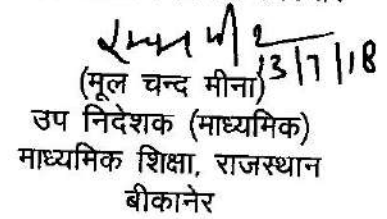 13/7/18
(मूल चन्द मीना)
उप निदेशक (माध्यमिक)
माध्यमिक शिक्षा, राजस्थान
बीकानेर